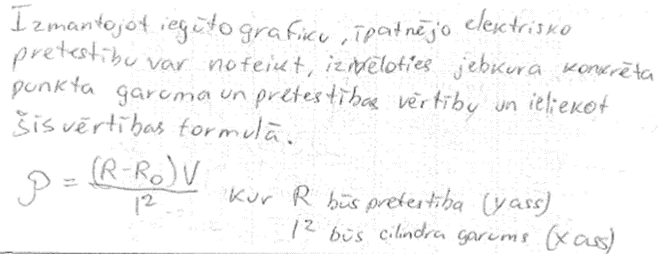 Izmantojot iegūto grafiku, īpatnējo elektrisko
pretestību var noteikt, izvēloties jebkura konkrēta
punkta garuma un pretestības vērtību un ieliekot
šīs vērtības formulā.
ρ = (R-R₀)V / l² kur R būs pretestība (y ass)
l² būs cilindra garums (x ass)